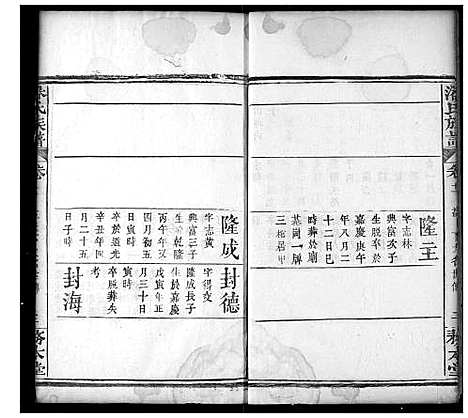 潘氏族譜
卷
務本堂
隆主
字志林
典富次子
生脱卒於
嘉慶庚午
年八月二
十二日巳
時葬於廟
基崗一牌
三塚居中
隆成
字志黄
典富三子
生於乾隆
丙午年又
四月初五
寅時
卒於道光
辛丑年四
月二十五
日子時
封德
字得交
隆成長子
生於嘉慶
戊寅年正
月三十日
寅時
卒脱葬失
考
封海
氏族譜
卷
務本堂